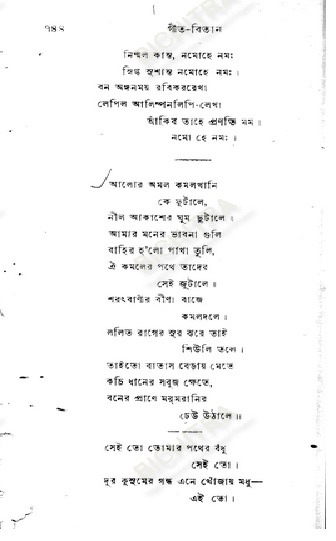 ৭৪৪ গীত-বিতান
নির্ম্মল কান্ত, নমোহে নমঃ
স্নিগ্ধ সুশান্ত নমোহে নমঃ।
বন অঙ্গনময় রবিকররেখা
লেপিল আলিম্পনলিপি-লেখা
আঁকিব তাহে প্রণতি মম।
নমো হে নমঃ।
আলোর অমল কমলখানি
কে ফুটালে,
নীল আকাশের ঘুম ছুটালে।
আমার মনের ভাবনা গুলি
বাহির হ'লো পাখা তুলি,
ঐ কমলের পথে তাদের
সেই জুটালে॥
শরৎবাণীর বীণা বাজে
কমলদলে॥
ললিত রাগের সুর ঝরে তাই
শিউলি তলে।
তাইতো বাতাস বেড়ায় মেতে
কচি ধানের সবুজ ক্ষেতে,
বনের প্রাণে মরমরানির
ঢেউ উঠালে॥
সেই তো তোমার পথের বঁধু
সেই তো।
দূর কুসুমের গন্ধ এনে খোঁজায় মধু—
এই তো।